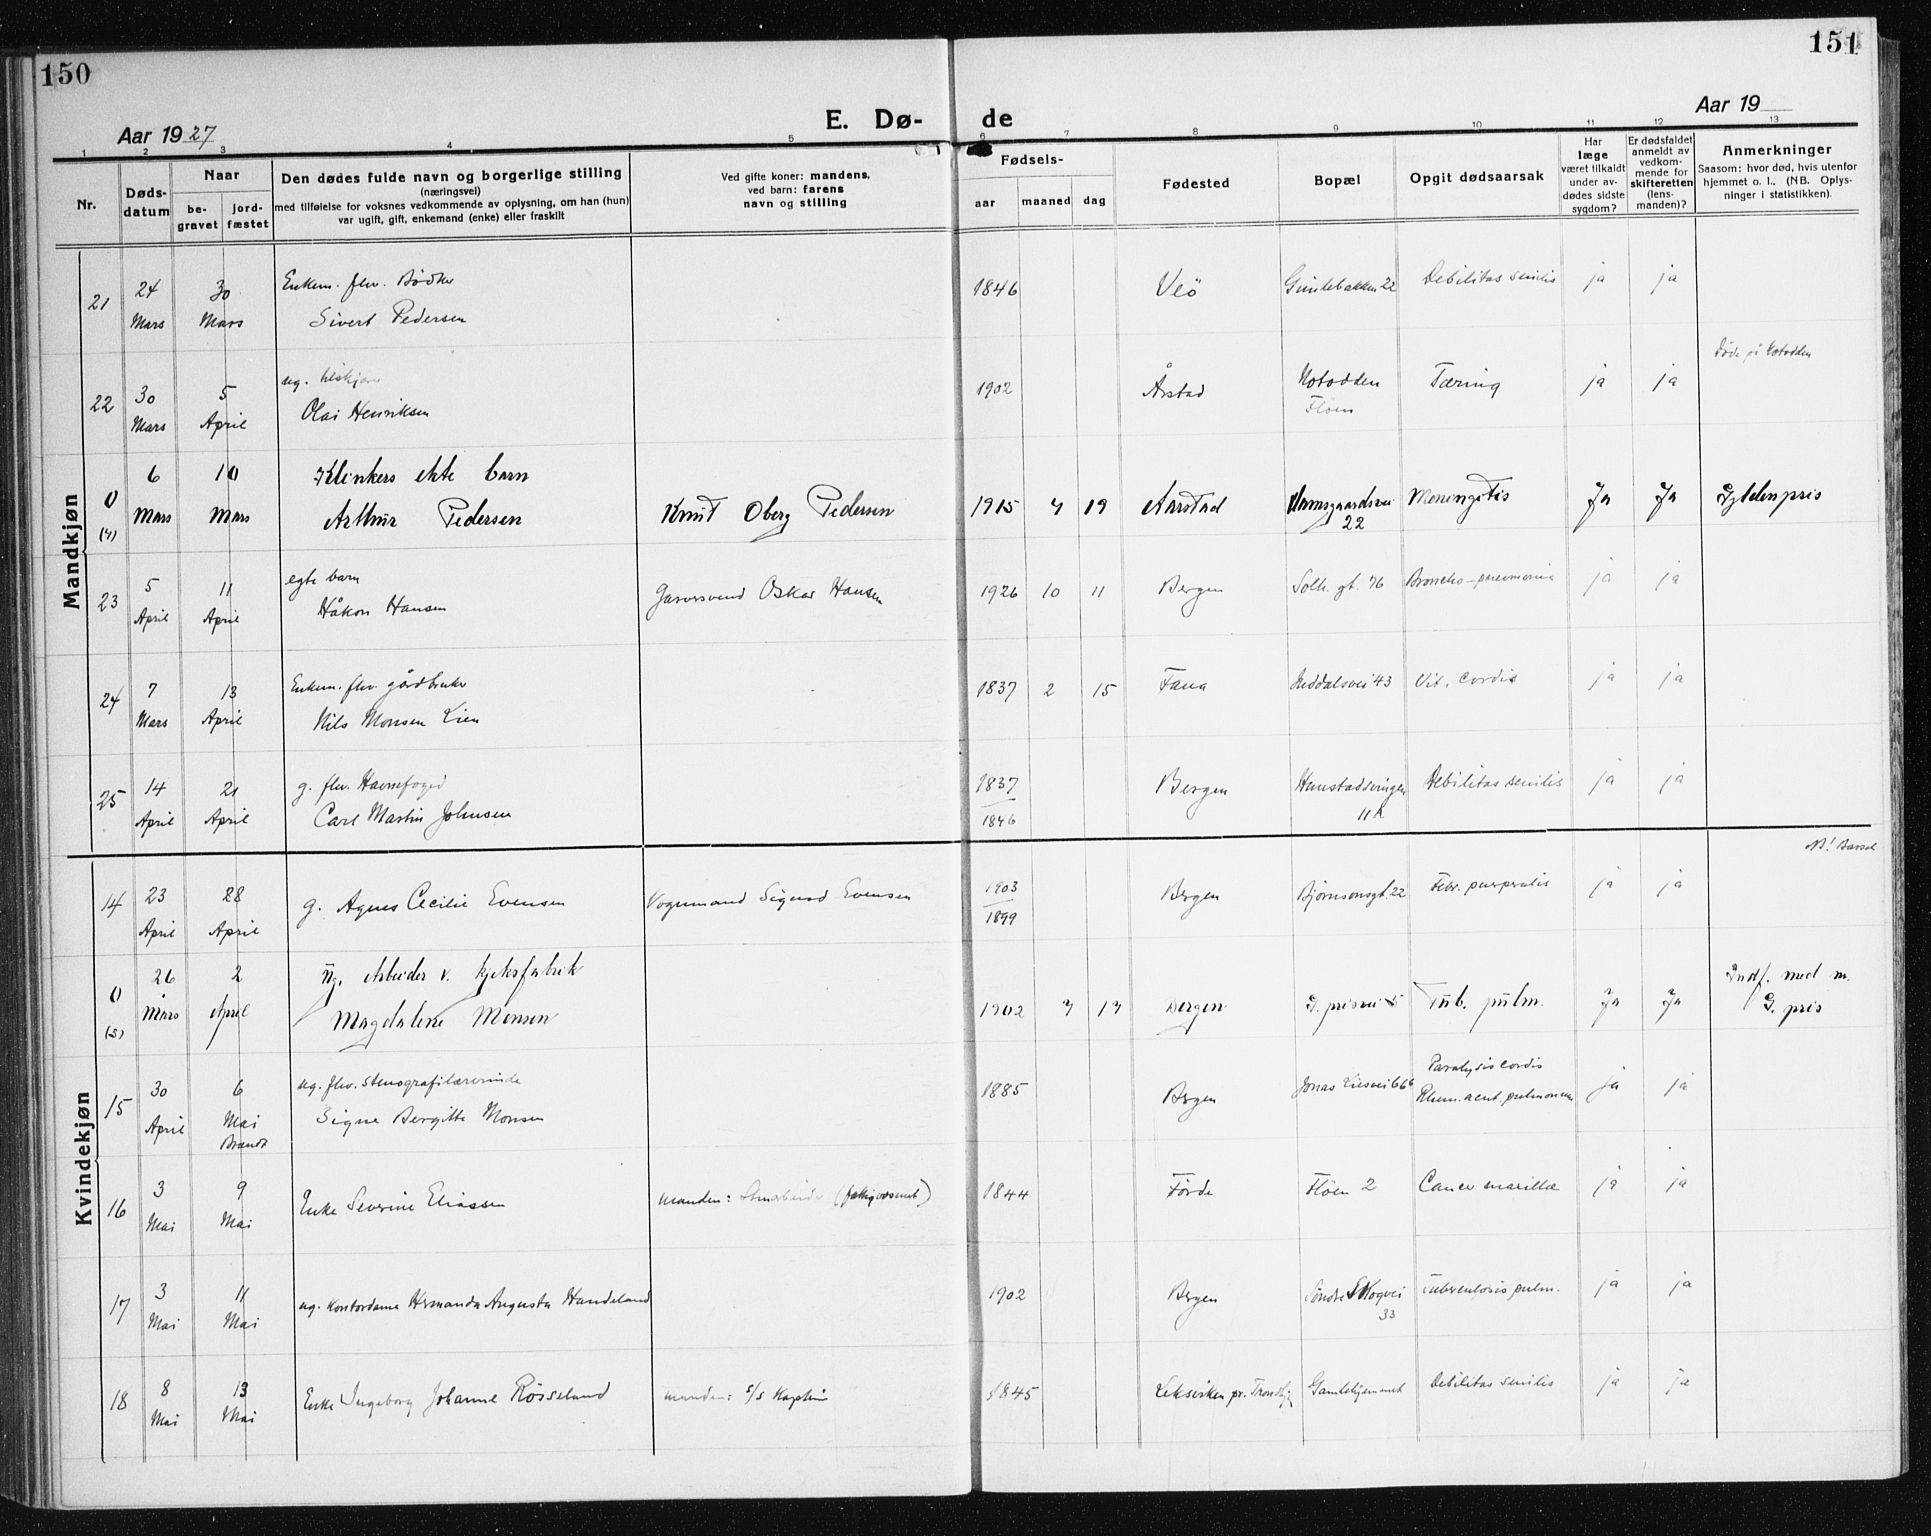 150
151
Aar 1927
E. Dø-
de
Aar 19
1 2 3 4 5 6 7 8 9 10 11 12 13
Nr.
Døds-
datum
Naar
be-
gravet
jord-
fæstet
Den dødes fulde navn og borgerlige stilling
(næringsvei)
med tilføielse for voksnes vedkommende av oplysning, om han (hun)
var ugift, gift, enkemand (enke) eller fraskilt
Ved gifte koner: mandens,
ved barn: farens
navn og stilling
Fødsels-
aar maaned dag
Fødested
Bopæl
Opgit dødsaarsak
Har
læge
været tilkaldt
under av-
dødes sidste
sygdom?
Er dødsfaldet
anmeldt av
vedkom-
mende for
skifteretten
(lens-
manden)?
Anmerkninger
Saasom: hvor død, hvis utenfor
hjemmet o. l., (NB. Oplys-
ninger i statistikken).
Mandkjøn
21 24 Mars 30 Mars Enkem. fhv. Bødker
Sivert Pedersen 1846 Veö Gimlebakken 22 Debilitas senilis ja ja
22 30 Mars 5 April ug.
Olai Henriksen 1902 Årstad Notodden
Flöen Tæring ja ja Døde på Notodden
0 (4) 6 Mars 10 Mars Klinkers ekte barn
Arthur Pedersen Knut Oberg Pedersen 1915 4 19 Aarstad 22 Meningitis Ja Ja Gyldenpris
23 5 April 11 April egte barn
Håkon Hansen Garversvend Oskar Hansen 1926 10 11 Bergen Solh. gt. 76 Broncho-pneumonia ja ja
24 7 Mars 13 April Enkem. fhv. gårdbruker
Nils Monsen Lien 1837 2 15 Fana 43 Vit. cordis ja ja
25 14 April 21 April g. fhv. Havnefoged
Carl Martin Johnsen 1837
1846 Bergen 11A Debilitas senilis ja ja
Kvindekjøn
14 23 April 28 April g. Agnes Cecilie Evensen Vognmand Sigurd Evensen 1903
1899 Bergen Bjørnsonsgt. 22 Febr. puerperalis ja ja NB! Barsel
0 (5) 26 Mars 2 April Ug. Arbeider v. kjeksfabrik
Magdalene Monsen 1902 3 13 Bergen G. prisvei 5 Tub. pulm. Ja Ja Indf. med m.
G. pris
15 30 April 6 Mai
Brændt ug. fhv. stenografilærerinde
Signe Bergitte Monsen 1885 Bergen Jonas Liesvei 66 Paralysis cordis
Rheum. acut. ja ja
16 3 Mai 9 Mai Enke Severine Eliassen manden: Stenarbeider (fattigvæsenet) 1844 Förde Flöen 2 Cancer maxilla ja ja
17 3 Mai 11 Mai ug. Kontordame Hermanda Augusta Handeland 1902 Bergen Söndre Skogvei
33 Tuberculosis pulm. ja ja
18 8 Mai 13 Mai Enke Ingeborg Johanne Rösseland manden: s/s Kaptein 1845 Leksviken pr. Trondhj. Gamlehjemmet Debilitas senilis ja ja